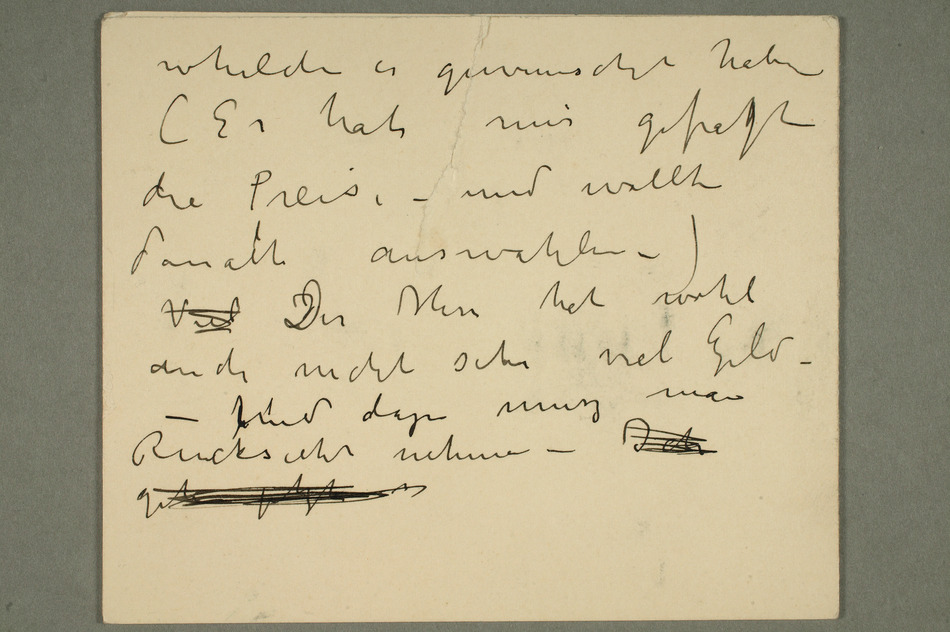 es gewünscht haben
(Er hat mir gefragt
die Preise, - und wollte
danach auswahlen -)
Viel Der Herr hat wohl
auch nicht sehr viel Geld -
- Und dazu musz man
Rucksicht nehmen - Ich